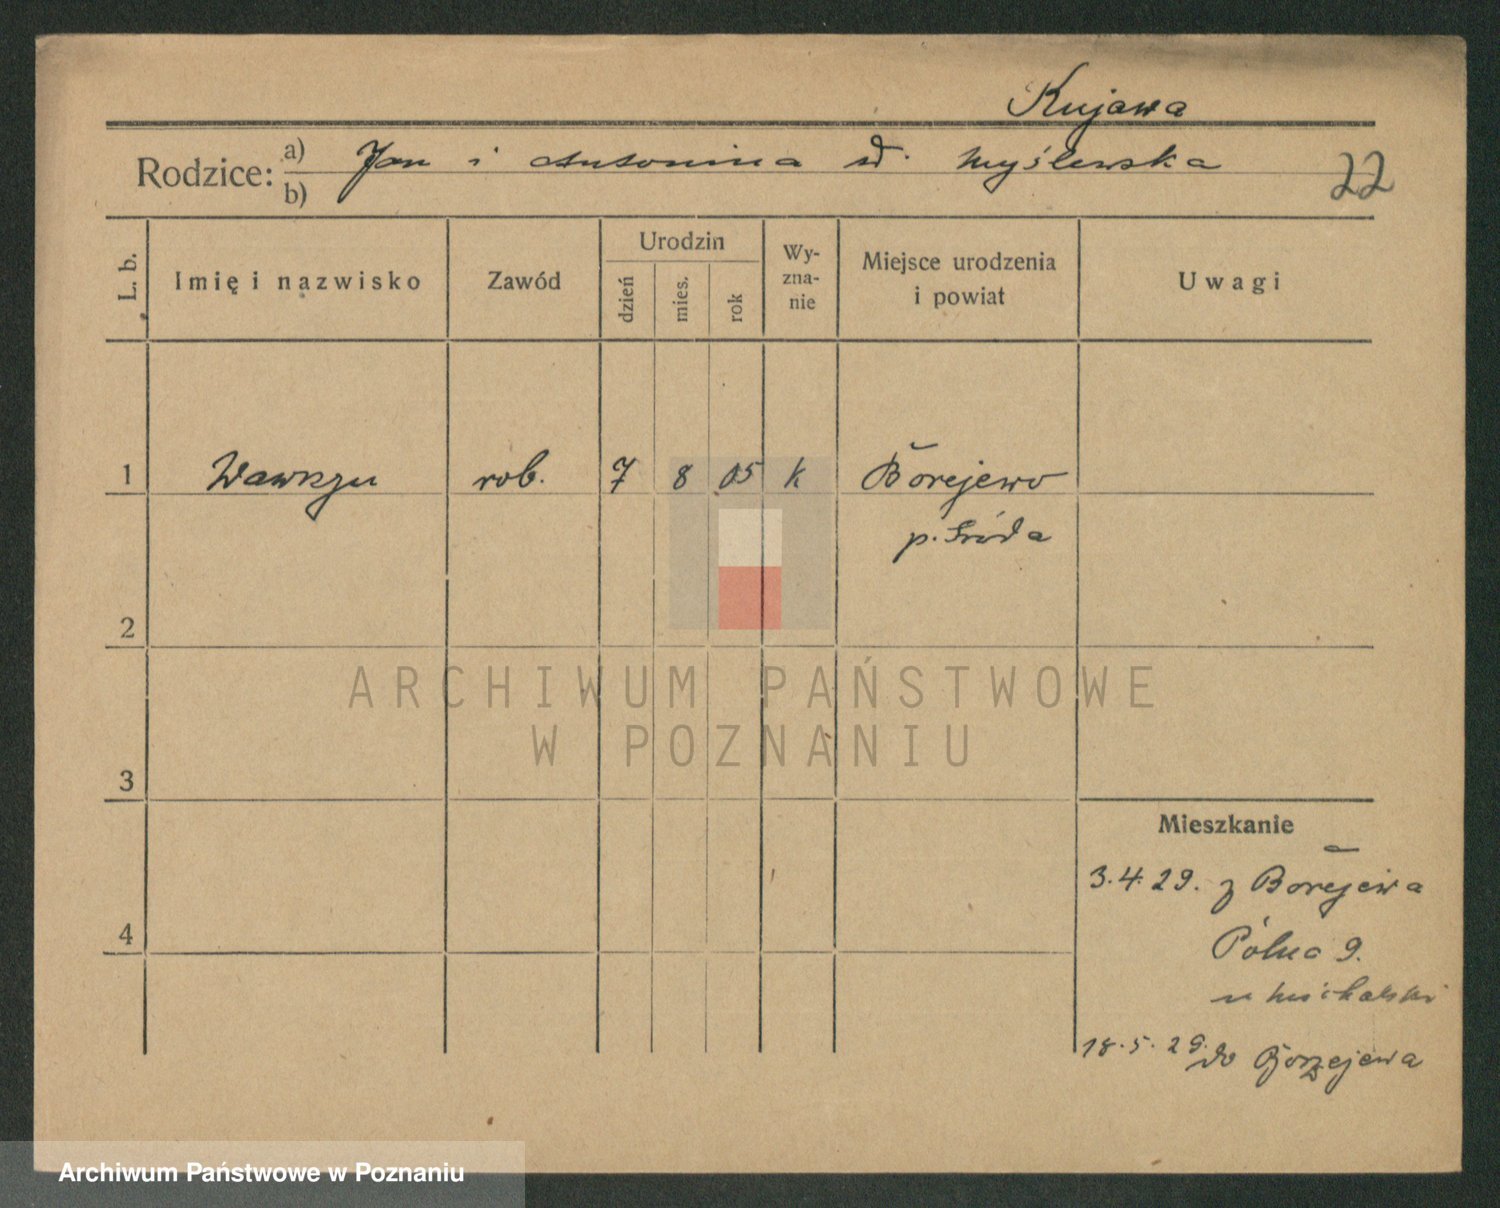 Kujawa
Rodzice: a) Jan i Antonina d. Myślewska
b)
22
L. b.
Imię i nazwisko
Zawód
Urodzin
dzień
mies.
rok
Wy-
zna-
nie
Miejsce urodzenia
i powiat
Uwagi
1 Wawrzyn rob. 7 8 05 k Borejewo
p. Środa
2
3
4
Mieszkanie
3.4.29. z Borejewa
Polna 9.
u Michalski
18.5.29. do Borzejewa
ARCHIWUM PAŃSTWOWE
W POZNANIU
Archiwum Państwowe w Poznaniu